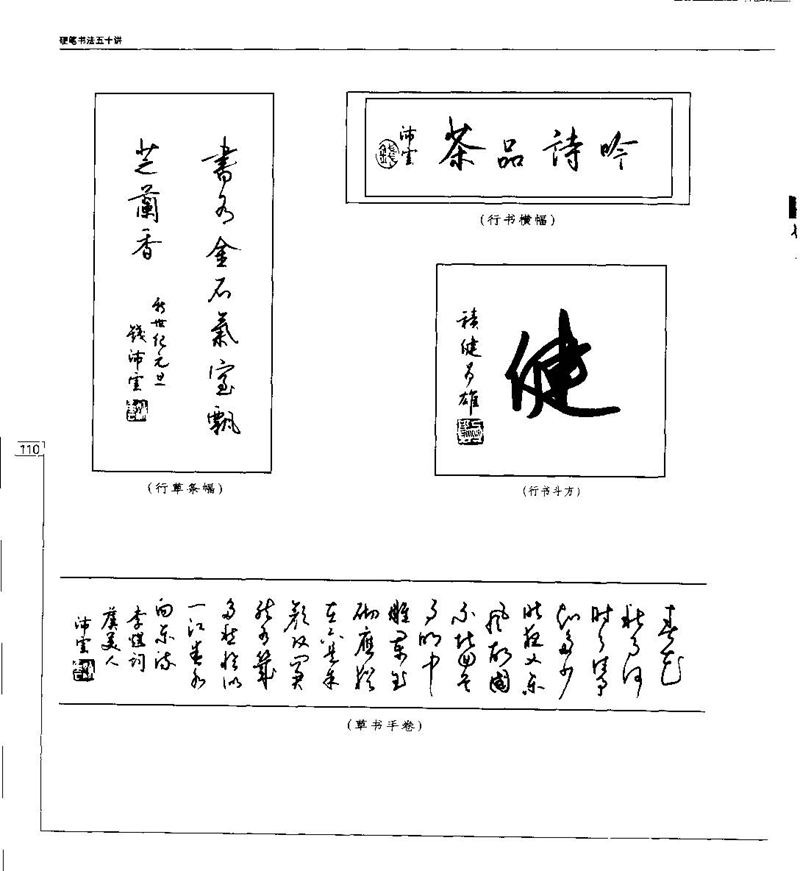 硬笔书法五十讲
書有金石氣室飄
芝蘭香
新世纪元旦
钱沛雲
(行草条幅)
吟詩品茶
沛雲
(行书横幅)
健
積健为雄
(行书斗方)
110
春花
秋月何
时了往事
知多少
昨夜又东
风故國
不堪回首
月明中
雕阑玉
砌應犹
在只是朱
颜改问君
能有幾
多愁恰似
一江春水
向东流
李煜词
虞美人
沛雲
(草书手卷)